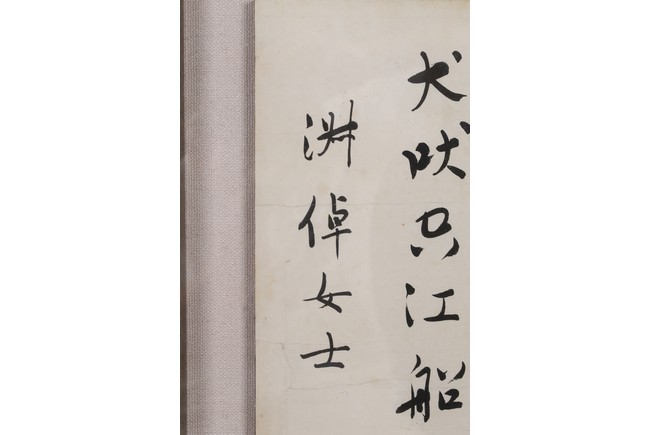 犬吠只江船
渊倬女士